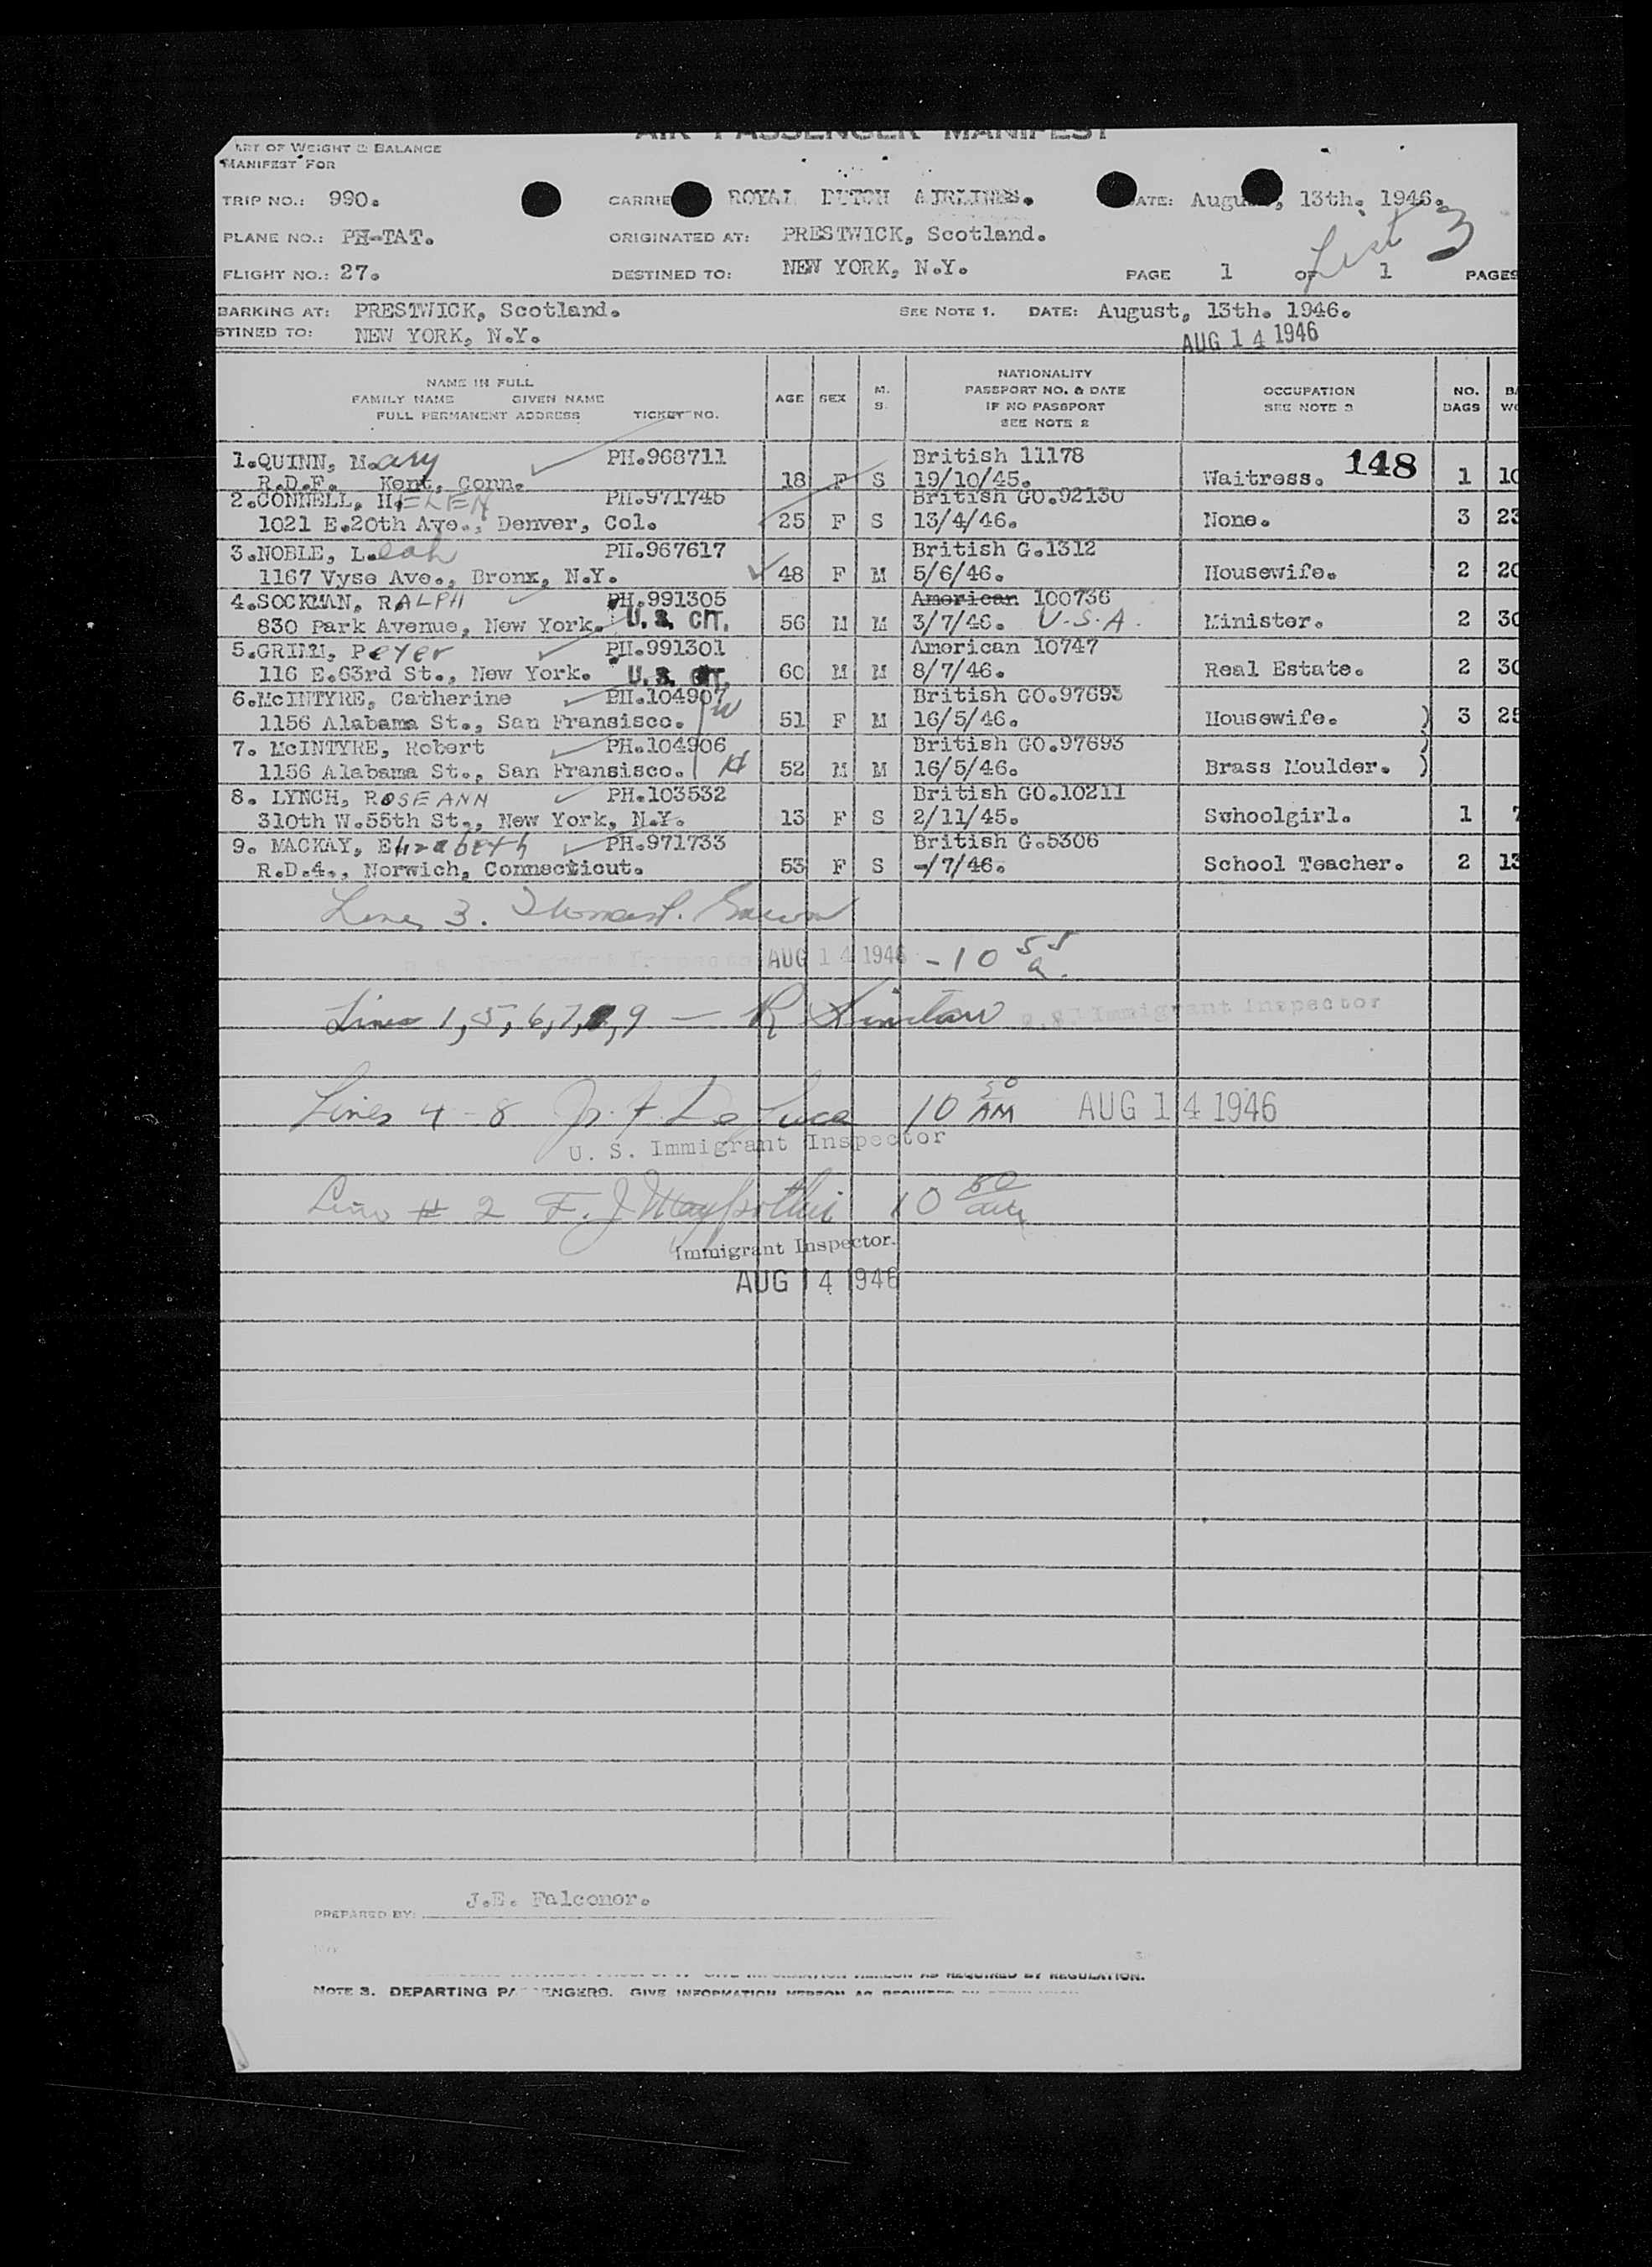 AIR PASSENGER MANIFEST
ART OF WEIGHT & BALANCE
MANIFEST FOR
TRIP NO.: 990. CARRIE ROYAL DUTCH AIRLINES. ATE: Augu , 13th. 1946.
PLANE NO.: PH-TAT. ORIGINATED AT: PRESTWICK, Scotland. List 3
FLIGHT NO.: 27. DESTINED TO: NEW YORK, N.Y. PAGE 1 OF 1 PAGES
BARKING AT: PRESTWICK, Scotland. SEE NOTE 1. DATE: August, 13th. 1946.
STINED TO: NEW YORK, N.Y. AUG 14 1946
NAME IN FULL
FAMILY NAME GIVEN NAME
FULL PERMANENT ADDRESS TICKET NO.
AGE SEX M. S.
NATIONALITY
PASSPORT NO. & DATE
IF NO PASSPORT
SEE NOTE 2
OCCUPATION
SEE NOTE 3
NO.
BAGS
BA
WG
1.QUINN, Mary PH.968711 British 11178 148
R.D.F. Kent, Conn. 18 F S 19/10/45. Waitress. 1 10
2.CONNELL, HELEN PH.971745 British GO.92130
1021 E.20th Ave., Denver, Col. 25 F S 13/4/46. None. 3 23
3.NOBLE, Leah PH.967617 British G.1312
1167 Vyse Ave., Bronx, N.Y. 48 F M 5/6/46. Housewife. 2 20
4.SOCKMAN, RALPH PH.991305 American 100736
830 Park Avenue, New York. U.S. CIT. 56 M M 3/7/46. U.S.A. Minister. 2 30
5.GRIMM, Peyer PH.991301 American 10747
116 E.63rd St., New York. U.S. CIT. 60 M M 8/7/46. Real Estate. 2 30
6.McINTYRE, Catherine PH.104907 British GO.97693
1156 Alabama St., San Fransisco. W 51 F M 16/5/46. Housewife. ) 3 25
7. McINTYRE, Robert PH.104906 British GO.97693 )
1156 Alabama St., San Fransisco. H 52 M M 16/5/46. Brass Moulder. )
8. LYNCH, ROSE ANN PH.103532 British GO.10211
310th W.55th St., New York, N.Y. 13 F S 2/11/45. Schoolgirl. 1 7
9. MACKAY, Elizabeth PH.971733 British G.5306
R.D.4., Norwich, Connecticut. 53 F S -/7/46. School Teacher. 2 13
Line 3.
AUG 14 1946 - 10 55 a.
Lines 1, 5, 6, 7, 9 — R U.S. Immigrant Inspector
Lines 4 - 8 De Luca 10 50 AM AUG 14 1946
U. S. Immigrant Inspector
Line # 2 F. J. 10 50
Immigrant Inspector.
AUG 14 1946
PREPARED BY: J.E. Falconor.
GIVE INFORMATION HEREON AS REQUIRED BY REGULATION.
NOTE 3. DEPARTING PA ENGERS. GIVE INFORMATION HEREON AS REQUIRED